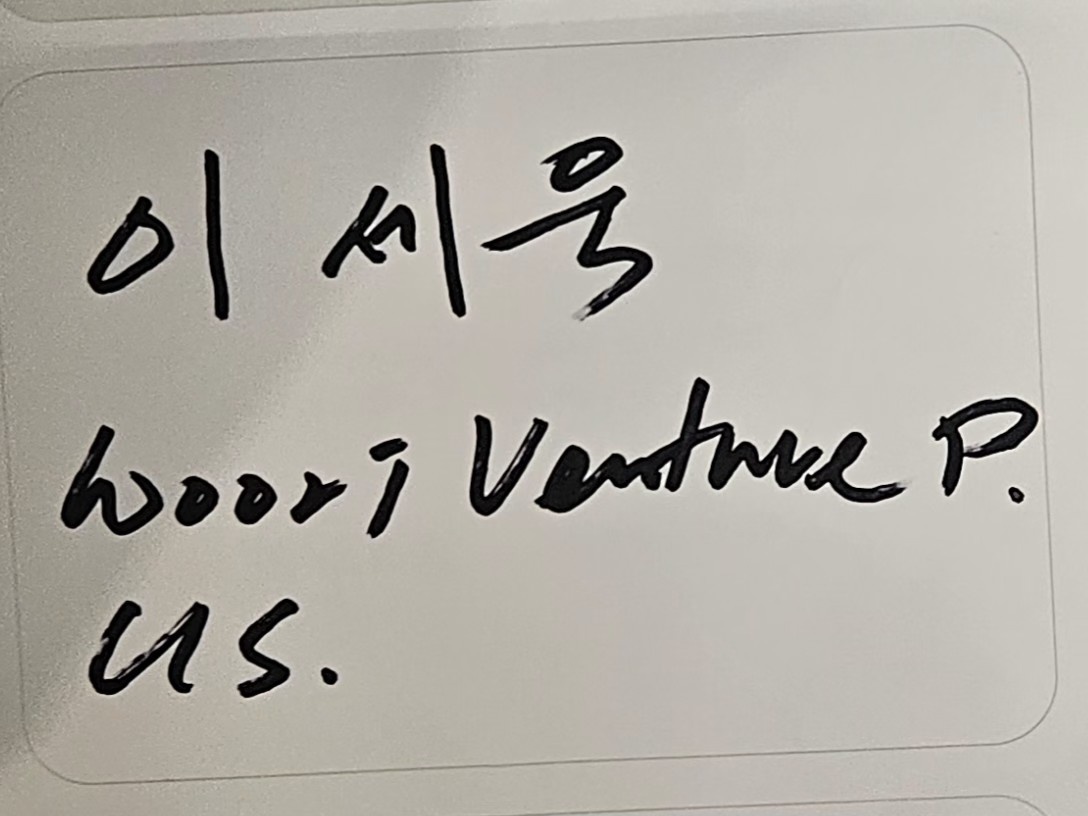 이세욱
Woori Venture P.
US.